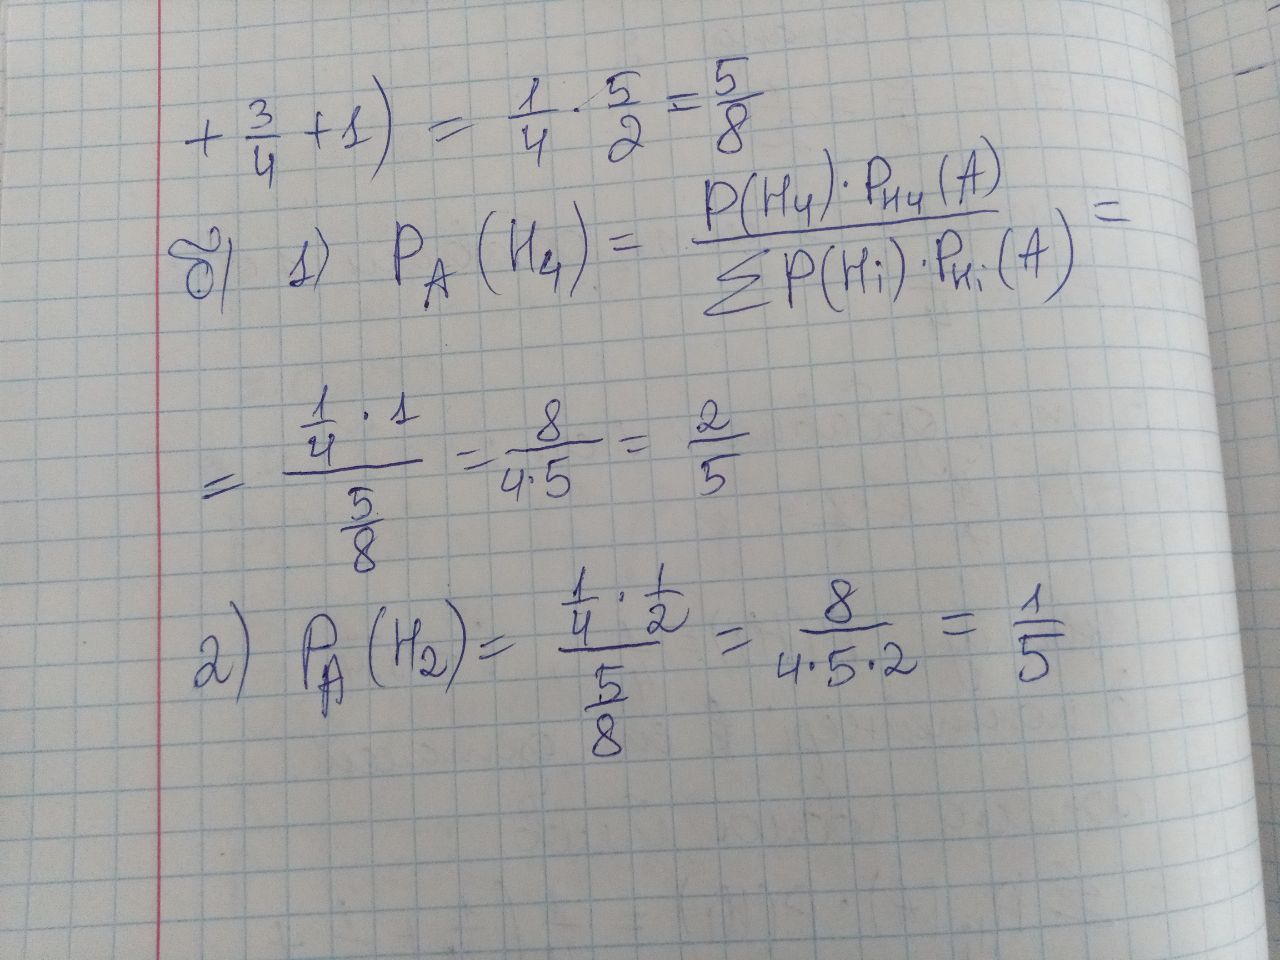 + 3/4 + 1) = 1/4 · 5/2 = 5/8
б) 1) P_A (H_4) = P(H_4) · P_{H_4}(A) / ∑ P(H_i) · P_{H_i}(A) =
= (1/4 · 1) / (5/8) = 8 / (4·5) = 2/5
2) P_A (H_2) = (1/4 · 1/2) / (5/8) = 8 / (4·5·2) = 1/5